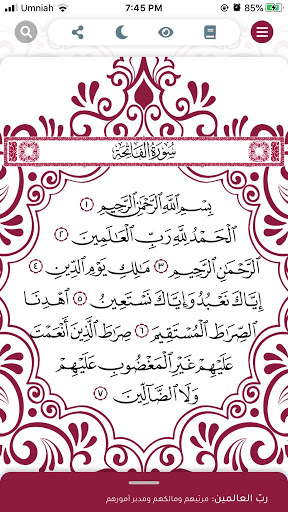 Umniah 7:45 PM 85%
سُورَةُ الفَاتِحَةِ
بِسْمِ ٱللَّهِ ٱلرَّحْمَٰنِ ٱلرَّحِيمِ ١
ٱلْحَمْدُ لِلَّهِ رَبِّ ٱلْعَالَمِينَ ٢
ٱلرَّحْمَٰنِ ٱلرَّحِيمِ ٣ مَالِكِ يَوْمِ ٱلدِّينِ ٤
إِيَّاكَ نَعْبُدُ وَإِيَّاكَ نَسْتَعِينُ ٥ ٱهْدِنَا
ٱلصِّرَاطَ ٱلْمُسْتَقِيمَ ٦ صِرَاطَ ٱلَّذِينَ أَنْعَمْتَ
عَلَيْهِمْ غَيْرِ ٱلْمَغْضُوبِ عَلَيْهِمْ
وَلَا ٱلضَّالِّينَ ٧
ربّ العالمين: مربّيهم ومالكهم ومدبر أمورهم